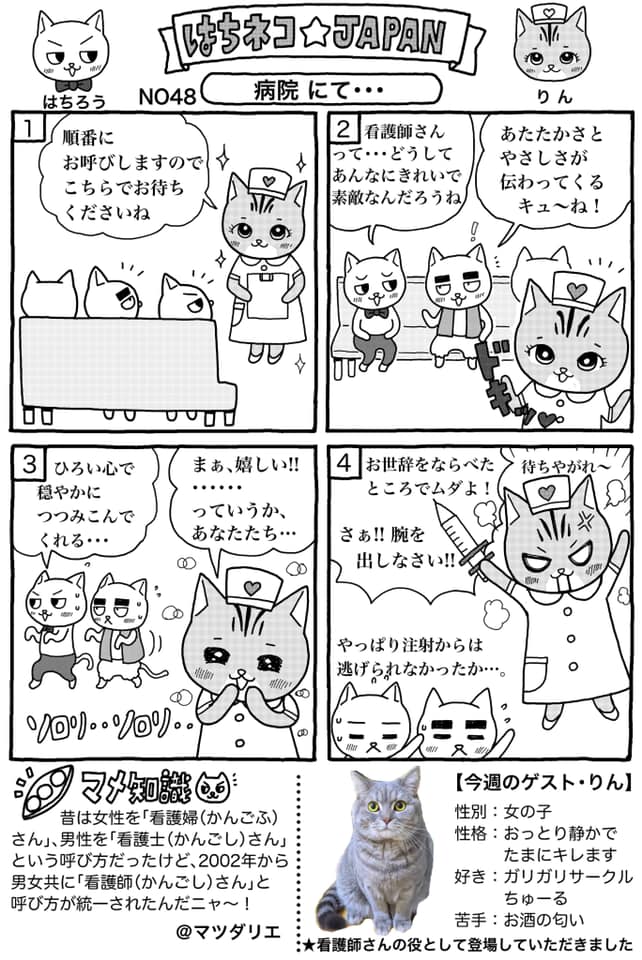 はちネコ☆JAPAN
はちろう
NO48
病院 にて・・・
りん
1
順番に
お呼びしますので
こちらでお待ち
くださいね
2
看護師さん
って・・・どうして
あんなにきれいで
素敵なんだろうね
あたたかさと
やさしさが
伝わってくる
キュ〜ね！
！
ドキッ
3
ひろい心で
穏やかに
つつみこんで
くれる・・・
まぁ、嬉しい!!
・・・・・・
っていうか、
あなたたち…
ソロリ・・ソロリ・・
4
お世辞をならべた
ところでムダよ！
さぁ!! 腕を
出しなさい!!
待ちやがれ〜
やっぱり注射からは
逃げられなかったか…。
マメ知識
昔は女性を「看護婦(かんごふ)
さん」、男性を「看護士(かんごし)さん」
という呼び方だったけど、2002年から
男女共に「看護師(かんごし)さん」と
呼び方が統一されたんだニャ〜！
@マツダリエ
【今週のゲスト・りん】
性別：女の子
性格：おっとり静かで
たまにキレます
好き：ガリガリサークル
ちゅーる
苦手：お酒の匂い
★看護師さんの役として登場していただきました